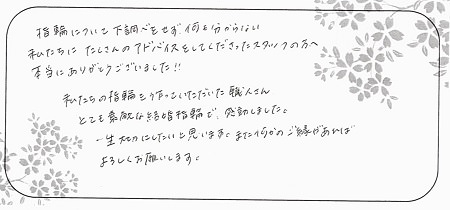 指輪について下調べもせず何も分からない
私たちにたくさんのアドバイスをしてくださったスタッフの方へ
本当にありがとうございました!!
私たちの指輪を作っていただいた職人さん
とても素敵な結婚指輪で、感動しました。
一生大切にしたいと思います。また何かのご縁があれば
よろしくお願いします。